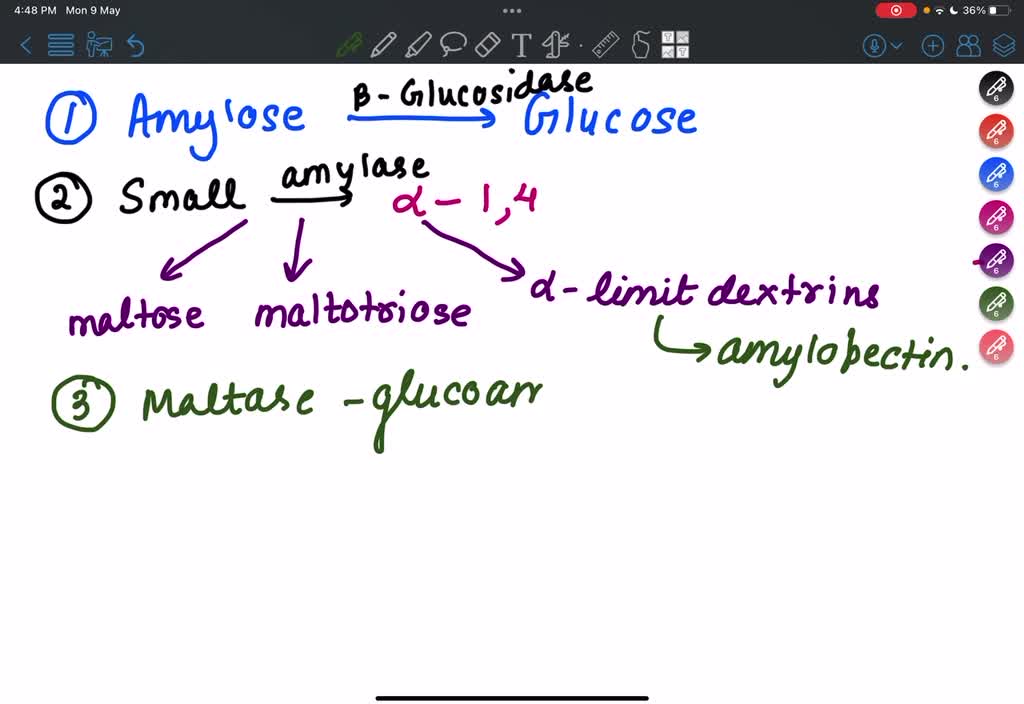 4:48 PM Mon 9 May
36%
① Amylose β-Glucosidase Glucose
② Small amylase α-1,4
maltose maltotriose α-limit dextrins
amylopectin.
③ Maltase-glucoam
T
6
6
6
6
6
6
6